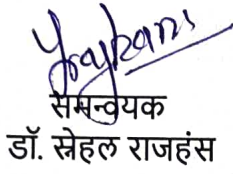 समन्वयक
डॉ. स्नेहल राजहंस